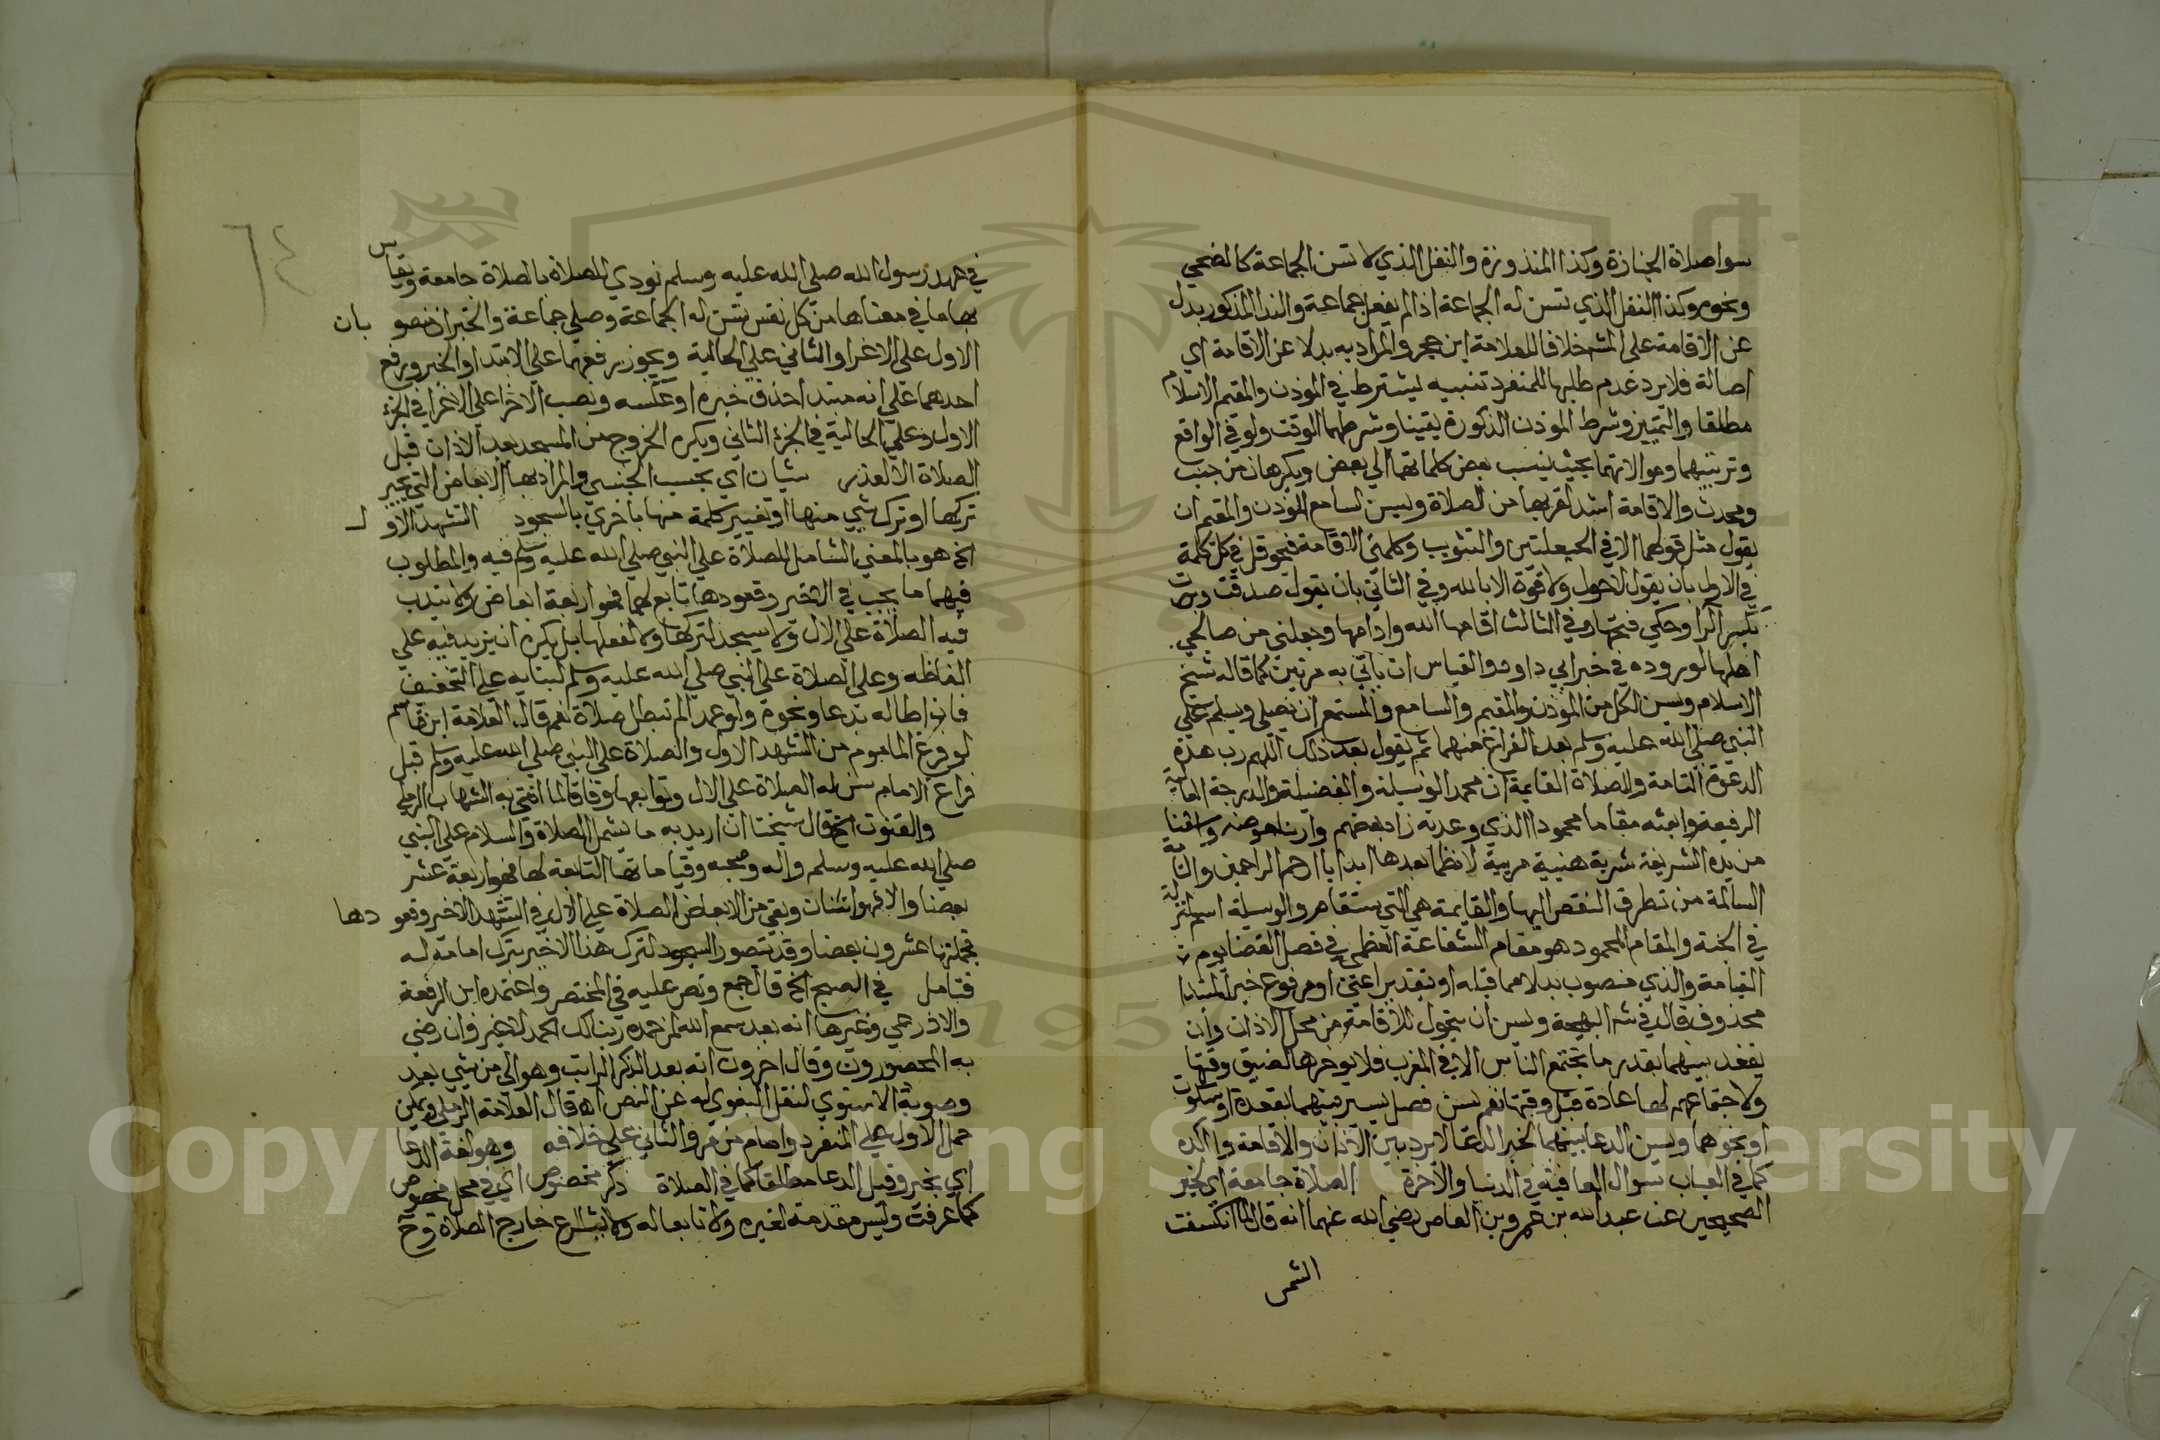 سوا صلاة الجنازة وكذا المنذورة والنفل الذي لا تسن الجماعة كالضحي
ونحوه وكذا النفل الذي تسن له الجماعة اذا لم يفعل جماعة والندا المذكور بدل
عن الاقامة علي المشـ خلافا للعلامة ابن حجر والمراد به بدلا عن الاقامة اي
اصالة فلا يرد عدم طلبها للمنفرد تنبيه يشترط في الموذن والمقيم الاسلام
مطلقا والتمييز وشرط الموذن الذكورة يقينا وشرطهما الوقت ولو في الواقع
وترتيبهما وموالاتهما بحيث ينسب بعض كلماتهما الي بعض ويكرهان من جنب
ومحدث والاقامة اشد لقربها من الصلاة ويسن لسامع الموذن والمقيم ان
يقول مثل قولهما الا في الحيعلتين والتثويب وكلمتي الاقامة فيحوقل في كل كلمة
في الاول بان يقول لا حول ولا قوة الا بالله وفي الثاني بان يقول صدقت وبررت
بكسر الرا وحكي فتحها وفي الثالث اقامها الله وادامها وجعلني من صالحي
اهلها لوروده في خبر ابي داود والقياس ان ياتي به مرتين كما قاله شيخ
الاسلام ويسن لكل من الموذن والمقيم والسامع والمستمع ان يصلي ويسلم علي
النبي صلي الله عليه وسلم بعد الفراغ منهما ثم يقول بعد ذلك اللهم رب هذه
الدعوة التامة والصلاة القايمة ات محمد الوسيلة والفضيلة والدرجة العالية
الرفيعة وابعثه مقاما محمودا الذي وعدته زاد بعضهم واوردنا حوضه واسقنا
من يده الشريفة شربة هنية مرية لا نظما بعدها ابدا يا ارحم الراحمين والتامة
السالمة من تطرق النقص اليها والقايمة هي التي ستقام والوسيلة اسم منزلة
في الجنة والمقام المحمود هو مقام الشفاعة العظمي في فصل القضا يوم
القيامة والذي منصوب بدلا مما قبله او بتقدير اعني او مرفوع خبر المبتدا
محذوف قال في شـ البهجة ويسن ان يتحول للاقامة من محل الاذان وان
يقعد بينهما بقدر ما تجتمع الناس الا في المغرب فلا يوخرها لضيق وقتها
ولاجتماعهم لها عادة قبل وقتها نعم يسن فصل يسير بينهما بقعدة او سكوت
او نحوهما ويسن الدعا بينهما لخبر الدعا لا يرد بين الاذان والاقامة واكده
كما في العباب سوال العافية في الدنيا والاخرة الصلاة جامعة اي لخبر
الصحيحين عن عبد الله بن عمرو بن العاص رضي الله عنهما انه قال لما انكسفت
الشمس
في عهد رسول الله صلي الله عليه وسلم نودي للصلاة بالصلاة جامعة ويقاس
بها ما في معناها من كل نفس تسن له الجماعة وصلي جماعة والجزان منصوبان
الاول علي الاغرا والثاني علي الحالية ويجوز رفعهما علي الابتدا والخبر ورفع
احدهما علي انه مبتدا حذف خبره او عكسه ونصب الاخر علي الاغرا في الجزء
الاول وعلي الحالية في الجزء الثاني ويكره الخروج من المسجد بعد الاذان قبل
الصلاة الا لعذر شيان اي بحسب الجنس والمراد بها الابعاض التي يجبر
تركها او ترك شي منها او تغيير كلمة منها باخري بالسجود التشهد الاول
الخ هو بالمعني الشامل للصلاة علي النبي صلي الله عليه وسلم فيه والمطلوب
فيهما ما يجب في الاخير وقعودها تابع لهما فهو اربعة ابعاض ولا يندب
فيه الصلاة علي الال ولا يسجد لتركها ولا لفعلها بل يكره ان يزيد فيه علي
الفاظه وعلي الصلاة علي النبي صلي الله عليه وسلم لبنايه علي التخفيف
فان اطاله بدعا ونحوه ولو عمدا لم تبطل صلاته نعم قال العلامة ابن قاسم
لو فرغ الماموم من التشهد الاول والصلاة علي النبي صلي الله عليه وسلم قبل
فراغ الامام سن له الصلاة علي الال وتوابعها وفاقا لما افتي به الشهاب الرملي
والقنوت الخ قال شيخنا ان اريد به ما يشمل الصلاة والسلام علي النبي
صلي الله عليه وسلم واله وصحبه وقياماتها التابعة لها فهو اربعة عشر
بعضا والا فهو اثنان وبقي من الابعاض الصلاة علي الال في التشهد الاخير وقعودها
فجملتها عشرون بعضا وقد يتصور السجود لترك هذا الاخير بترك امامه له
فتامل في الصبح الخ قال جمع ونص عليه في المختصر واعتمده ابن الرفعة
والاذرعي وغيرها انه بعد سمع الله لمن حمده ربنا لك الحمد لا غير وان رضي
به المحصورون وقال اخرون انه بعد الذكر الراتب وهو الي من شي بعد
وصوبه الاسنوي لنقل البغوي له عن النص اه قال العلامة الرملي ويمكن
حمل الاول علي المنفرد وامام من مر والثاني علي خلافه وهو لغة الدعا
اي بخير وقيل الدعا مطلقا كما في الصلاة ذكر مخصوص اي في محل مخصوص
كما عرفت وليس مقدمة لغيره ولا تابعا له ولا يشرع خارج الصلاة وخ
Copyright © King Saud University
1957
٦٤